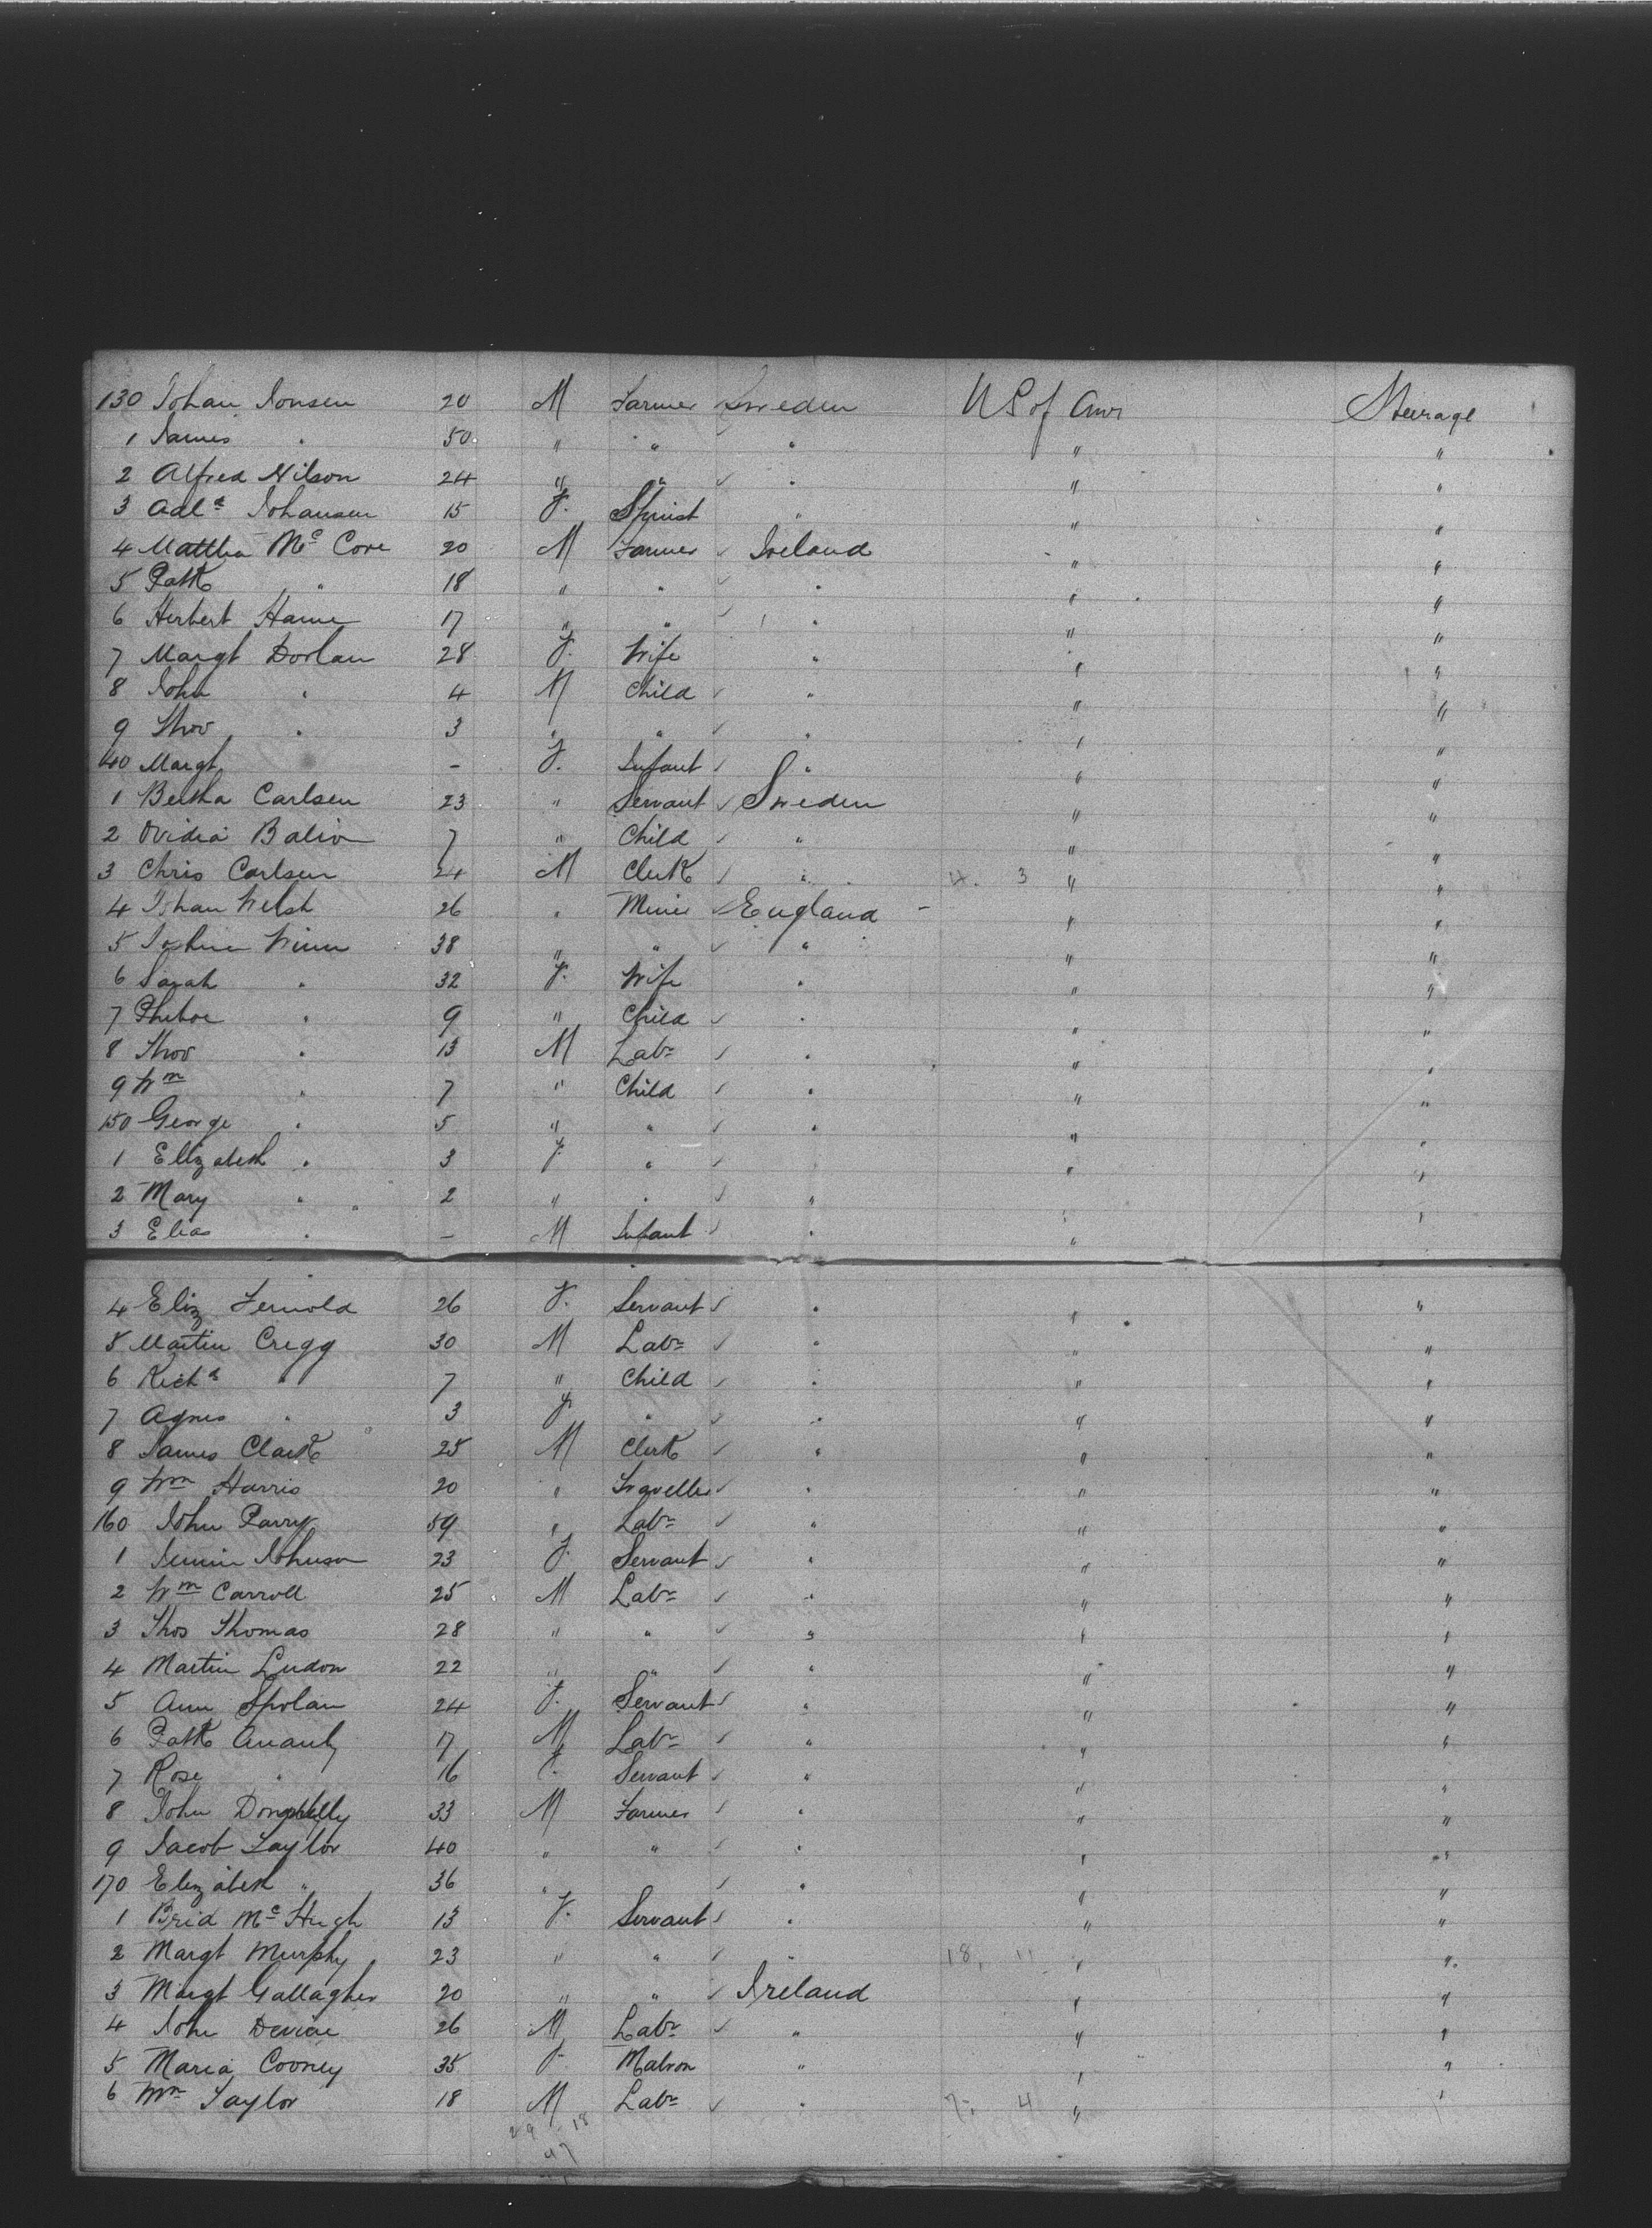 130 Johan Jonsen 20 M Farmer Sweden US of Amr Steerage
1 James " 50 " " " " "
2 Alfred Nilson 24 " " " " "
3 Adla Johansen 15 F. Spinst " " "
4 Matthew Mc Cove 20 M Farmer Ireland " "
5 Patk " 18 " " " " "
6 Herbert Hame 17 " " " " "
7 Margt Dorlan 28 F. Wife " " "
8 John " 4 M Child " " "
9 Thos " 3 " " " " "
40 Margt - F. Infant " " "
1 Bertha Carlsen 23 " Servant Sweden " "
2 Ovidia 7 " Child " " "
3 Chris Carlsen 24 M Clerk " 4. 3 " "
4 Johan Welsh 26 " Miner England - " "
5 Joshua Winn 38 " " " " "
6 Sarah " 32 F. Wife " " "
7 Pheboe " 9 " Child " " "
8 Thos " 13 M Labr " " "
9 Wm " 7 " Child " " "
150 George " 5 " " " " "
1 Elizabeth " 3 F. " " "
2 Mary " 2 " " " " "
3 Elias " - M Infant " " "
4 Eliz 26 F. Servant " " "
5 Martin Cregg 30 M Labr " " "
6 Richd " 7 " Child " " "
7 Agnes " 3 F. " " " "
8 James Clark 25 M Clerk " " "
9 Wm Harris 20 " Traveller " " "
160 John Parry 59 " Labr " " "
1 Jennie Johnson 23 F. Servant " " "
2 Wm Carroll 25 M Labr " " "
3 Thos Thomas 28 " " " " "
4 Martin Ludon 22 " " " " "
5 Ann Spolan 24 F. Servant " " "
6 Patk 17 M Labr " " "
7 Rose " 16 F. Servant " " "
8 John Donnelly 33 M Farmer " " "
9 Jacob Taylor 40 " " " " "
170 Elizabeth " 36 " " " "
1 Brid Mc Hugh 13 F. Servant " " "
2 Margt Murphy 23 " " " 18, 11 " "
3 Margt Gallagher 20 " " Ireland " "
4 John Devine 26 M Labr " " "
5 Maria Cooney 35 F Matron " " "
6 Wm Taylor 18 M Labr " 7, 4 " "
29 18
47